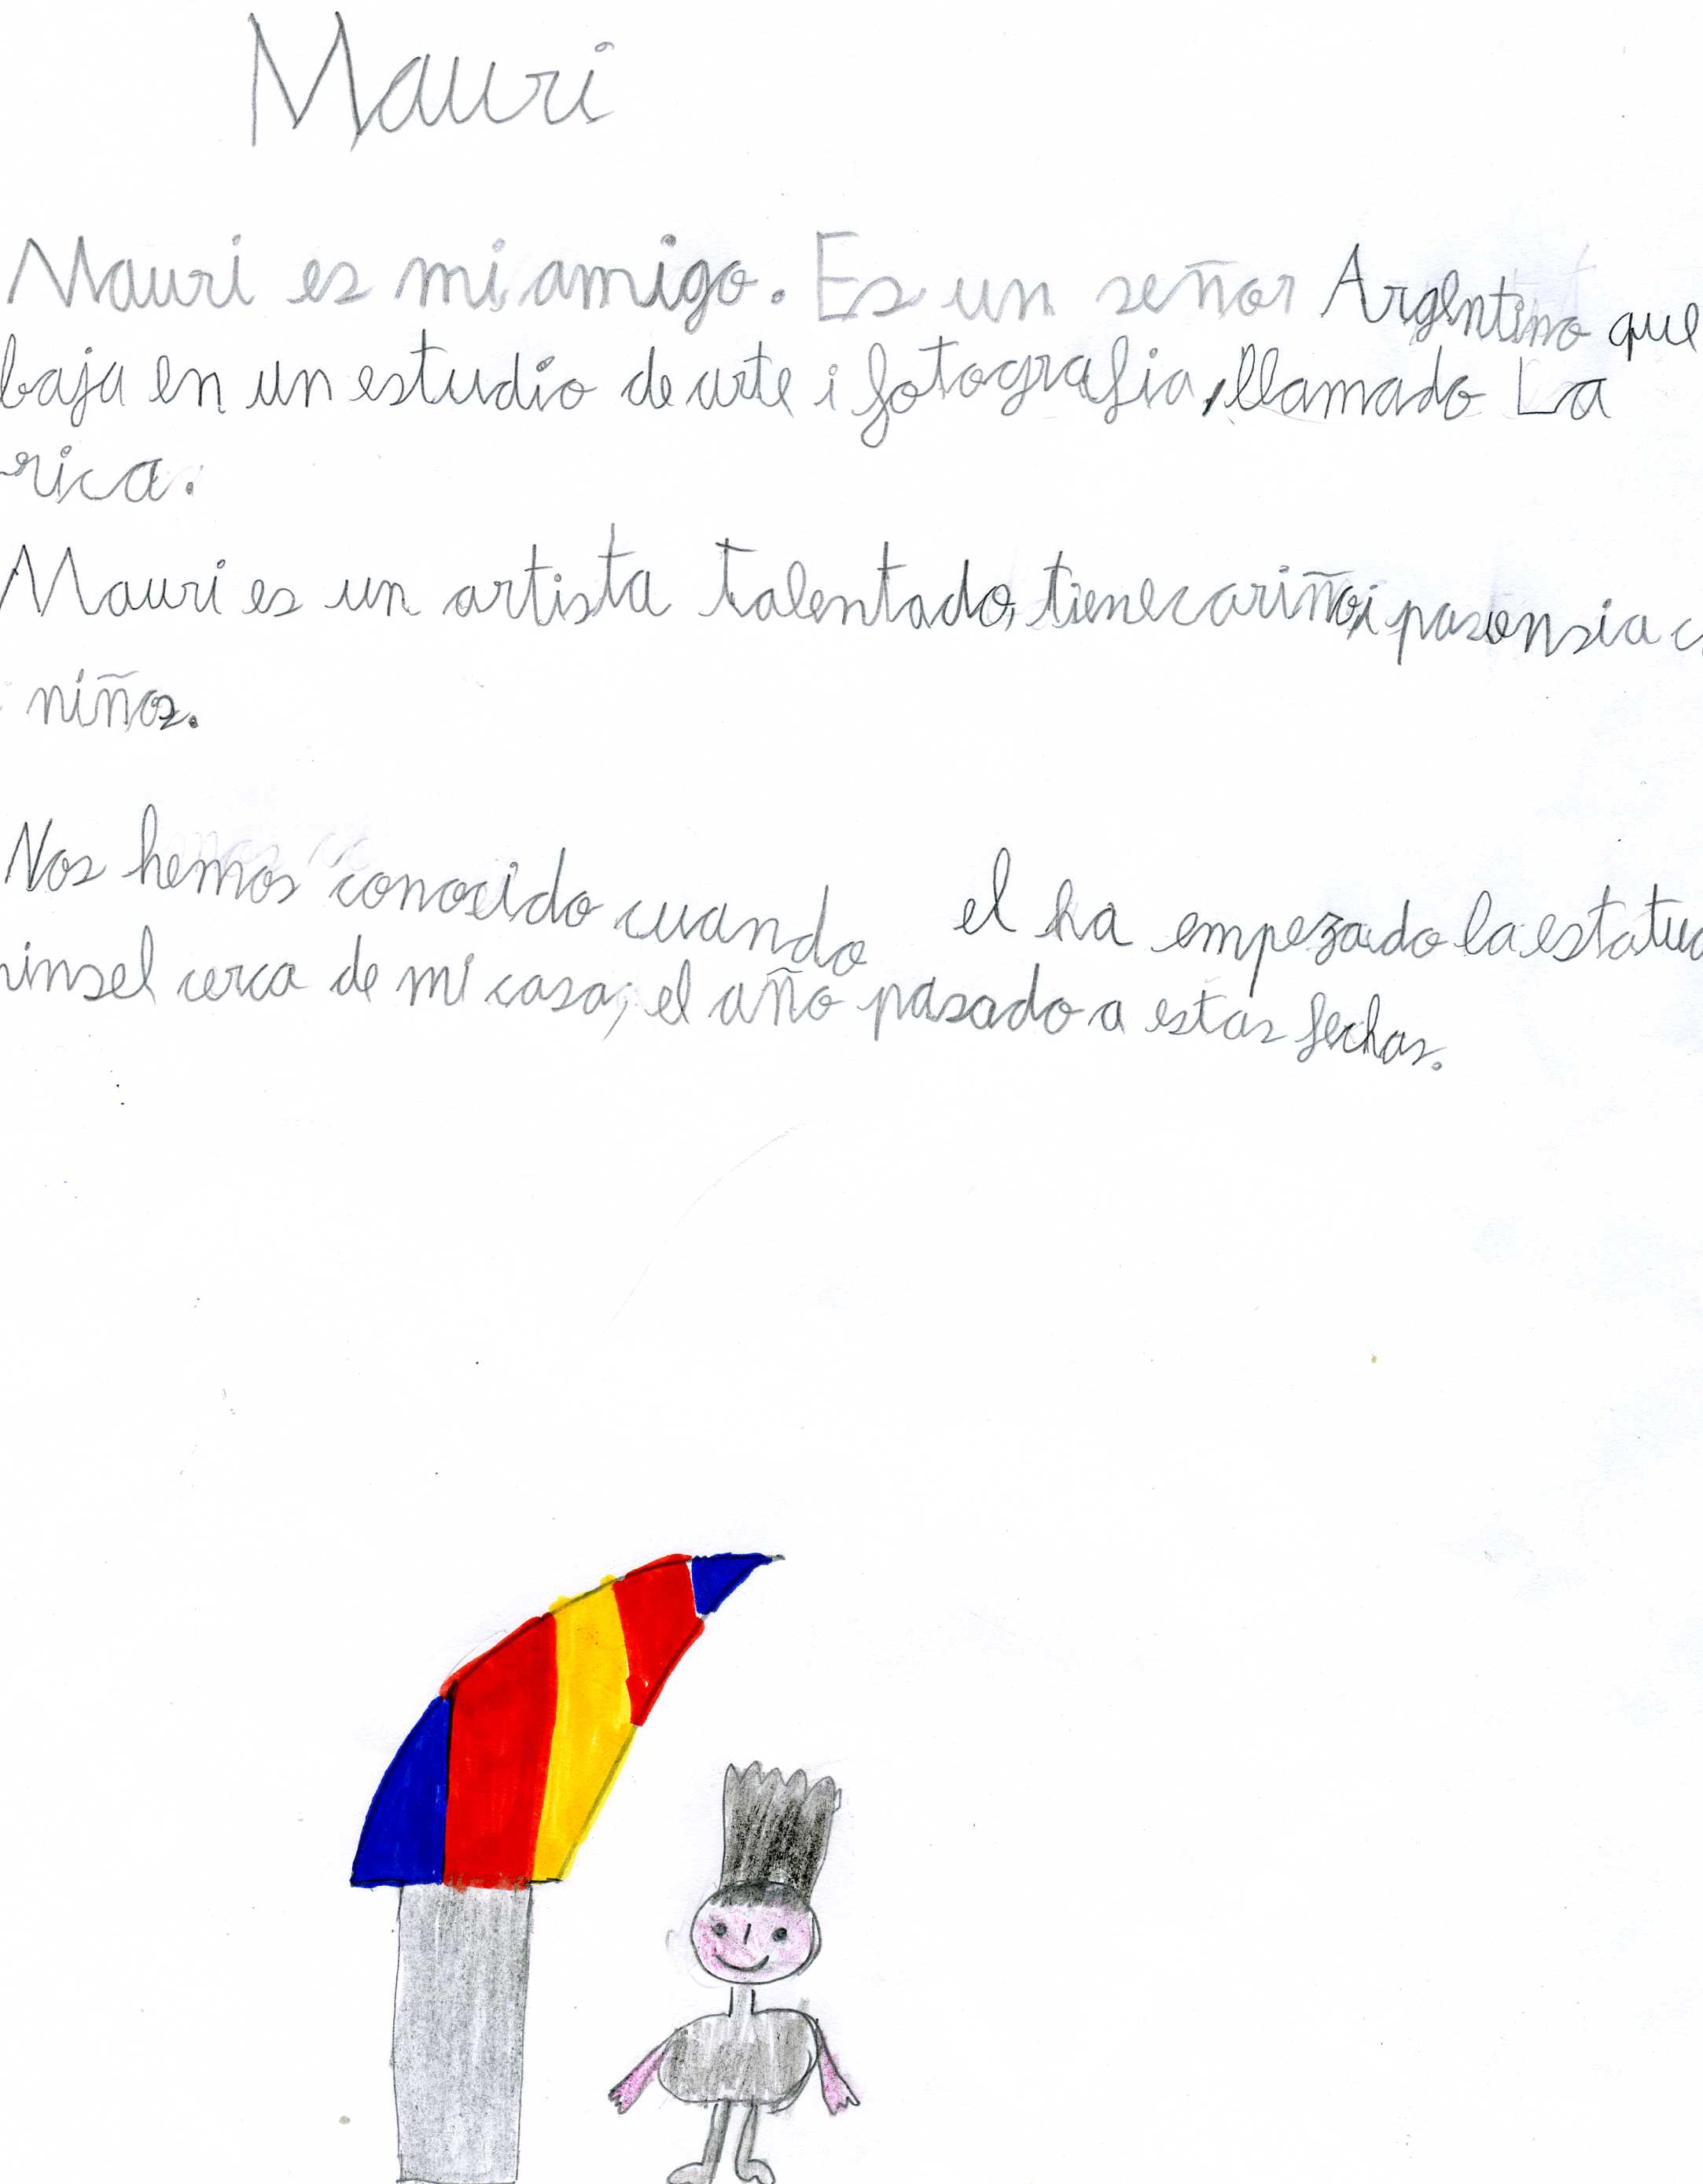 Mauri
Mauri es mi amigo. Es un señor Argentino que
baja en un estudio de arte i fotografia, llamado La
rica.
Mauri es un artista talentado, tiene cariño i pasensia c
niños.
Nos hemos conosido cuando el ha empezado la estatua
pinsel cerca de mi casa, el año pasado a estas fechas.